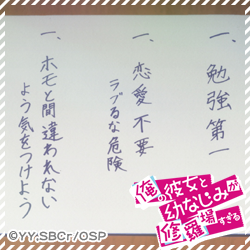 一、勉強第一
一、恋愛不要
ラブるな危険
一、ホモと間違われない
よう気をつけよう
俺の彼女と
幼なじみが
修羅場すぎる
©YY;SBCr/OSP